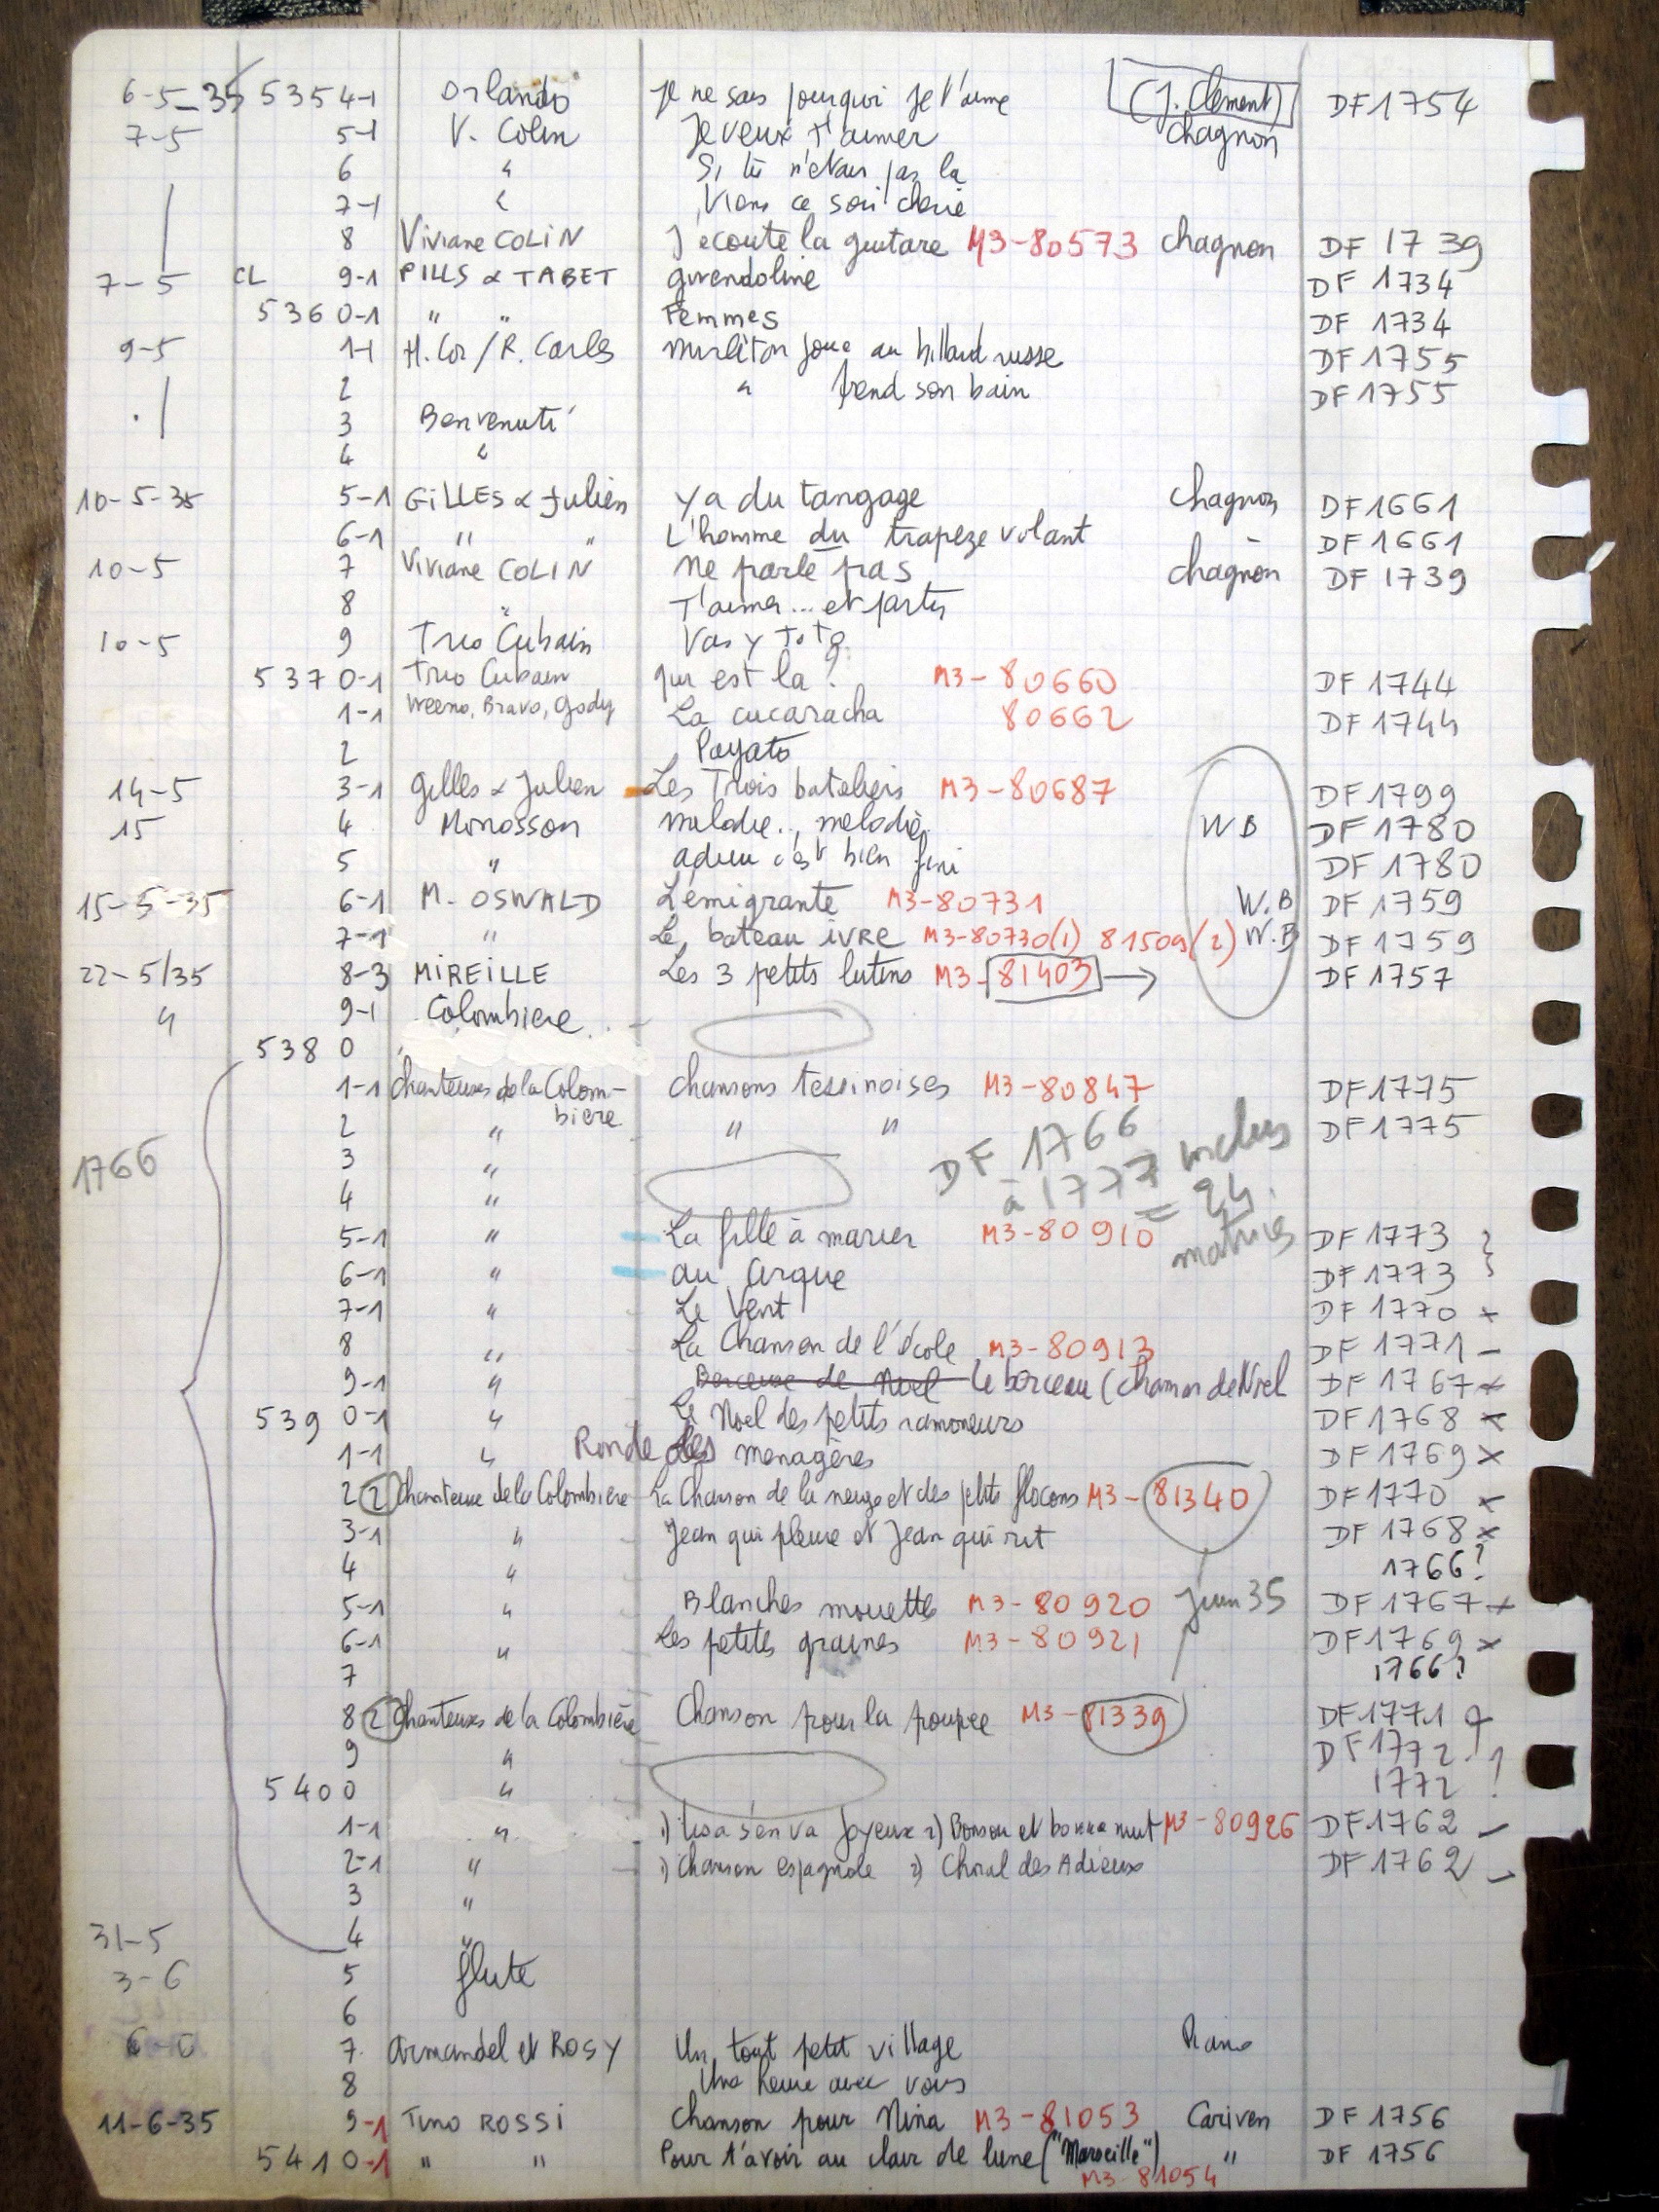 6-5-35 5354-1 Orlando Je ne sais pourquoi je t'aime (J. Clement) DF1754
7-5 5-1 V. Colin Je veux t'aimer Chagnon
6 " Si tu n'etais pas la
7-1 " Viens ce soir cherie
8 Viviane COLIN J'ecoute la guitare M3-80573 Chagnon DF 1739
7-5 CL 9-1 PILLS & TABET gwendoline DF 1734
5360-1 " " Femmes DF 1734
9-5 1-1 H. Cor / R. Carles mirliton joue au billard russe DF1755
2 " prend son bain DF1755
3 Benvenuti
4 "
10-5-35 5-1 GILLES & Julien Y a du tangage Chagnon DF1661
6-1 " " L'homme du trapeze volant " DF1661
10-5 7 Viviane COLIN Ne parle pas Chagnon DF 1739
8 " T'aimer... et partir
10-5 9 Trio Cubain Vas y Toto
5370-1 Trio Cubain qui est la ? M3-80660 DF 1744
1-1 Bravo, Gody La cucaracha 80662 DF 1744
2 Payato
14-5 3-1 Gilles & Julien Les Trois bateliers M3-80687 DF1799
15 4 Monosson melodie.., melodie WB DF1780
5 " adieu c'est bien fini DF1780
15-5-35 6-1 M. OSWALD L'emigrante M3-80731 W.B DF1759
7-1 " Le bateau ivre M3-80730(1) 81509(2) W.B DF1759
22-5/35 8-3 MIREILLE Les 3 petits lutins M3-81403 → DF1757
" 9-1 Colombiere
5380
1-1 Chanteuses de la Colom- chansons tessinoises M3-80847 DF1775
biere
2 " " " DF1775
DF 1766
à 1777 inclus
= 24
matrices
1766 3 "
4 "
5-1 " La fille à marier M3-80910 DF1773
6-1 " au cirque DF1773
7-1 " Le Vent DF1770 x
8 " La Chanson de l'école M3-80913 DF1771 -
9-1 " Berceuse de Noel Le berceau (chanson de Noel DF 1767 x
5390-1 " Le Noel des petits ramoneurs DF1768 x
1-1 " Ronde des menagères DF1769 x
2 (2) Chanteuse de la Colombiere La Chanson de la neige et des petits flocons M3-81340 DF1770 x
3-1 " Jean qui pleure et Jean qui rit DF1768 x
4 " 1766?
5-1 " Blanches mouettes M3-80920 Juin 35 DF1767 x
6-1 " Les petites graines M3-80921 DF1769 x
7 1766?
8 (2) Chanteuses de la Colombière Chanson pour la poupee M3-81339 DF1771
9 " DF1772
5400 " 1772 !
1-1 " 1) Lisa s'en va joyeuse 2) Bonsoir et bonne nuit M3-80926 DF1762 -
2-1 " 1) Chanson espagnole 2) Choral des Adieux DF1762 -
3 "
31-5 4 "
3-6 5 flute
6
7 Armandel et ROSY Un tout petit village Piano
8 Une heure avec vous
11-6-35 9-1 Tino ROSSI Chanson pour Nina M3-81053 Cariven DF 1756
5410-1 " " Pour t'avoir au clair de lune ("Marseille") " DF 1756
M3-81054